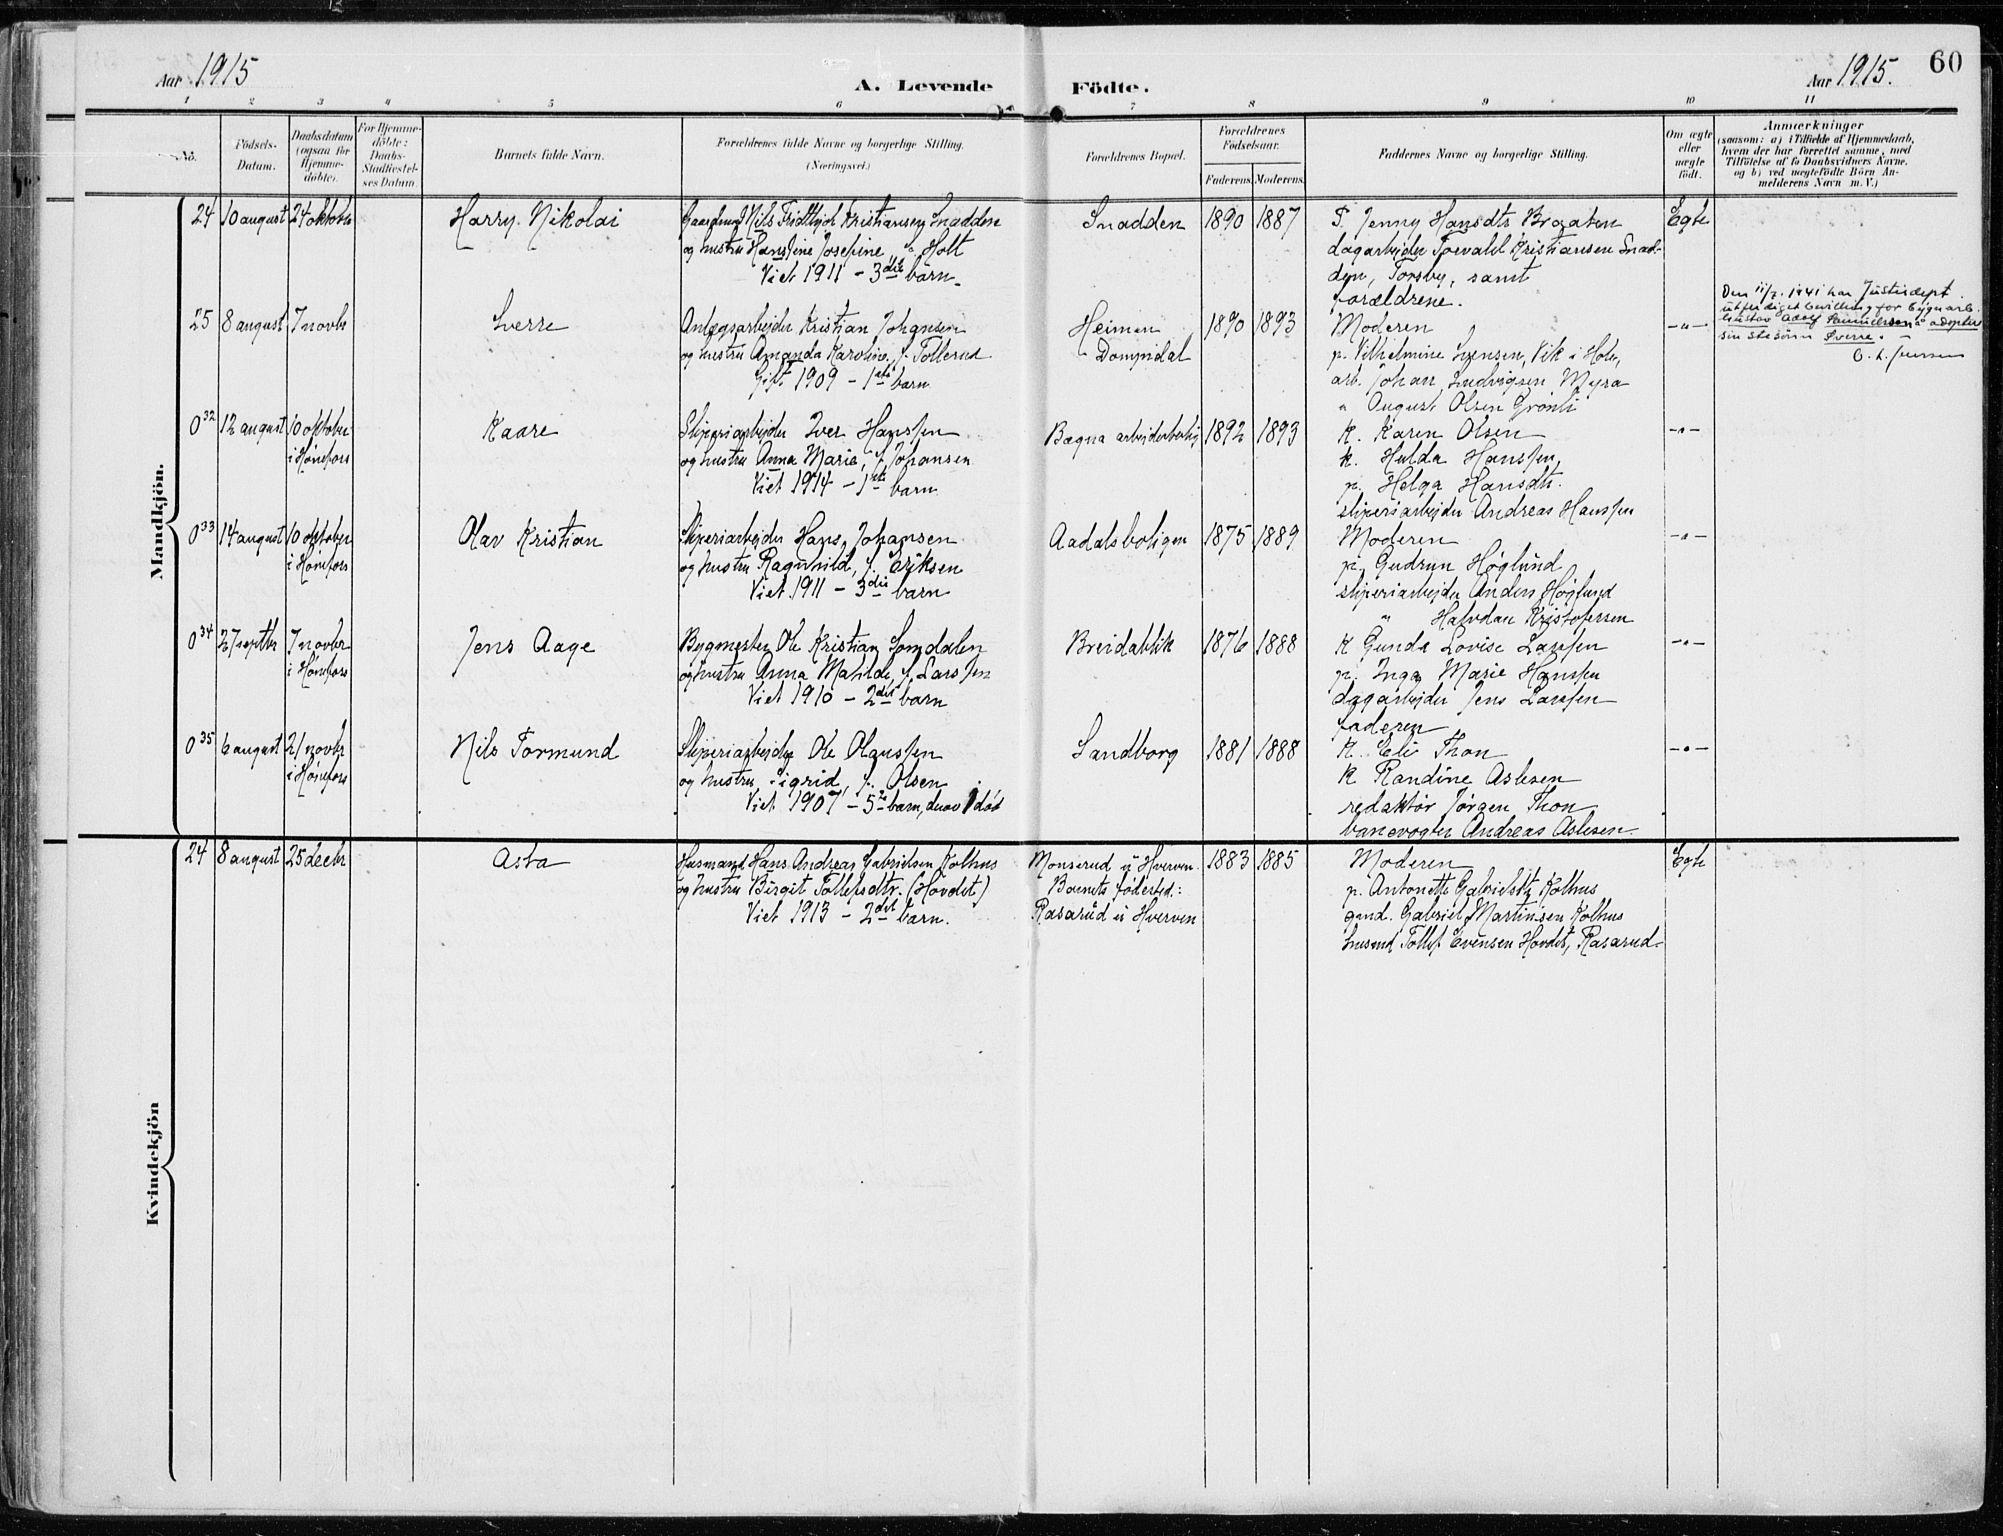 Aar 1915
A. Levende Födte.
Aar 1915.
60
1 2 3 4 5 6 7 8 9 10 11
No.
Födsels-
Datum.
Daabsdatum
(ogsaa for
Hjemme-
döbte).
For Hjemme-
döbte:
Daabs-
Stadfæstel-
ses Datum.
Barnets fulde Navn.
Forældrenes fulde Navne og borgerlige Stilling.
(Næringsvei.)
Forældrenes Bopæl.
Forældrenes
Födselsaar.
Faderens. Moderens.
Faddernes Navne og borgerlige Stilling.
Om ægte
eller
uægte
födt.
Anmærkninger
(saasom: a) i Tilfælde af Hjemmedaab,
hvem der har forrettet samme, med
Tilföielse af to Daabsvidners Navne,
og b) ved uægtefödte Börn An-
melderens Navn m. V.)
Mandkjön.
24 10 august 24 oktober
Harry Nikolai
Nils Fridthjof Kristiansen Snadden
og hustru Hansine Josefine Holt
Viet 1911 - 3die barn.
Snadden 1890 1887
P. Jenny Hansdtr Braaten
dagarbeider Torvald Kristiansen Snad-
den, Torsby, samt
forældrene.
Egte
25 8 august 7 novbr
Sverre
Anlægsarbeider Kristian Johansen
og hustru Amanda Karoline, f. Tollerud
Gift 1909 - 1ste barn
Heimen
Domndal
1890 1893
Moderen
p. Vilhelmine Svensen, Vik i Hole,
arb. Johan Ludvigsen Myra
" August Olsen Grönli
-"-
Den 11/7 1941 har Justisdept
utferdiget bevilling for bygn.arb.
Gustav Adolf Samuelsen å adoptere
sin stesönn Sverre. -
0 32 12 august 10 oktober
i Hönefoss
Kaare
Sliperiarbeider Iver Hanssen
og hustru Anna Marie, f. Johansen
Viet 1914 - 1ste barn
Bægna arbeiderbolig 1892 1893
K. Karen Olsen
k. Hulda Hanssen,
p. Helga Hansdtr.
sliperiarbeider Andreas Hanssen
-"-
0 33 14 august 10 oktober
i Hönefoss
Olav Kristian
Sliperiarbeider Hans Johansen
og hustru Ragnhild, f. Eriksen
Viet 1911 - 3die barn
Aadalsboligen 1875 1889
Moderen
p. Gudrun Höglund
sliperiarbeider Anders Höglund
" Halvdan Kristofersen
-"-
0 34 27 septbr 7 novbr
i Hönefoss
Jens Aage
Bygmester Ole Kristian Somdalen
og hustru Anna Matilde, f. Larssen
Viet 1910 - 2det barn
Breidablik 1876 1888
K Gunda Lovise Larssen
p. Inga Marie Hanssen
dagarbeider Jens Larssen
faderen
-"-
0 35 6 august 21 novbr
i Hönefoss
Nils Tormund
Sliperiarbeider Ole Olaussen
og hustru Sigrid, f. Olsen
Viet 1907 - 5te barn, derav 1 död
Sandborg 1881 1888
K. Eli Thon
k Randine Aslesen
redaktör Jörgen Thon
banevogter Andreas Aslesen
-"-
Kvindekjön
24 8 august 25 decbr
Asta
Husmand Hans Andreas Gabrielsen Kolhus
og hustru Birgit Tollefsdtr. (Hovdet)
Viet 1913 - 2det barn.
Monserud u Hverven
Barnets födested:
Rasarud u Hverven
1883 1885
Moderen
p. Antonette Gabrielsdtr Kolhus
gmd. Gabriel Martinsen Kolhus
husmd Tollef Evensen Hovdet, Rasarud
Egte